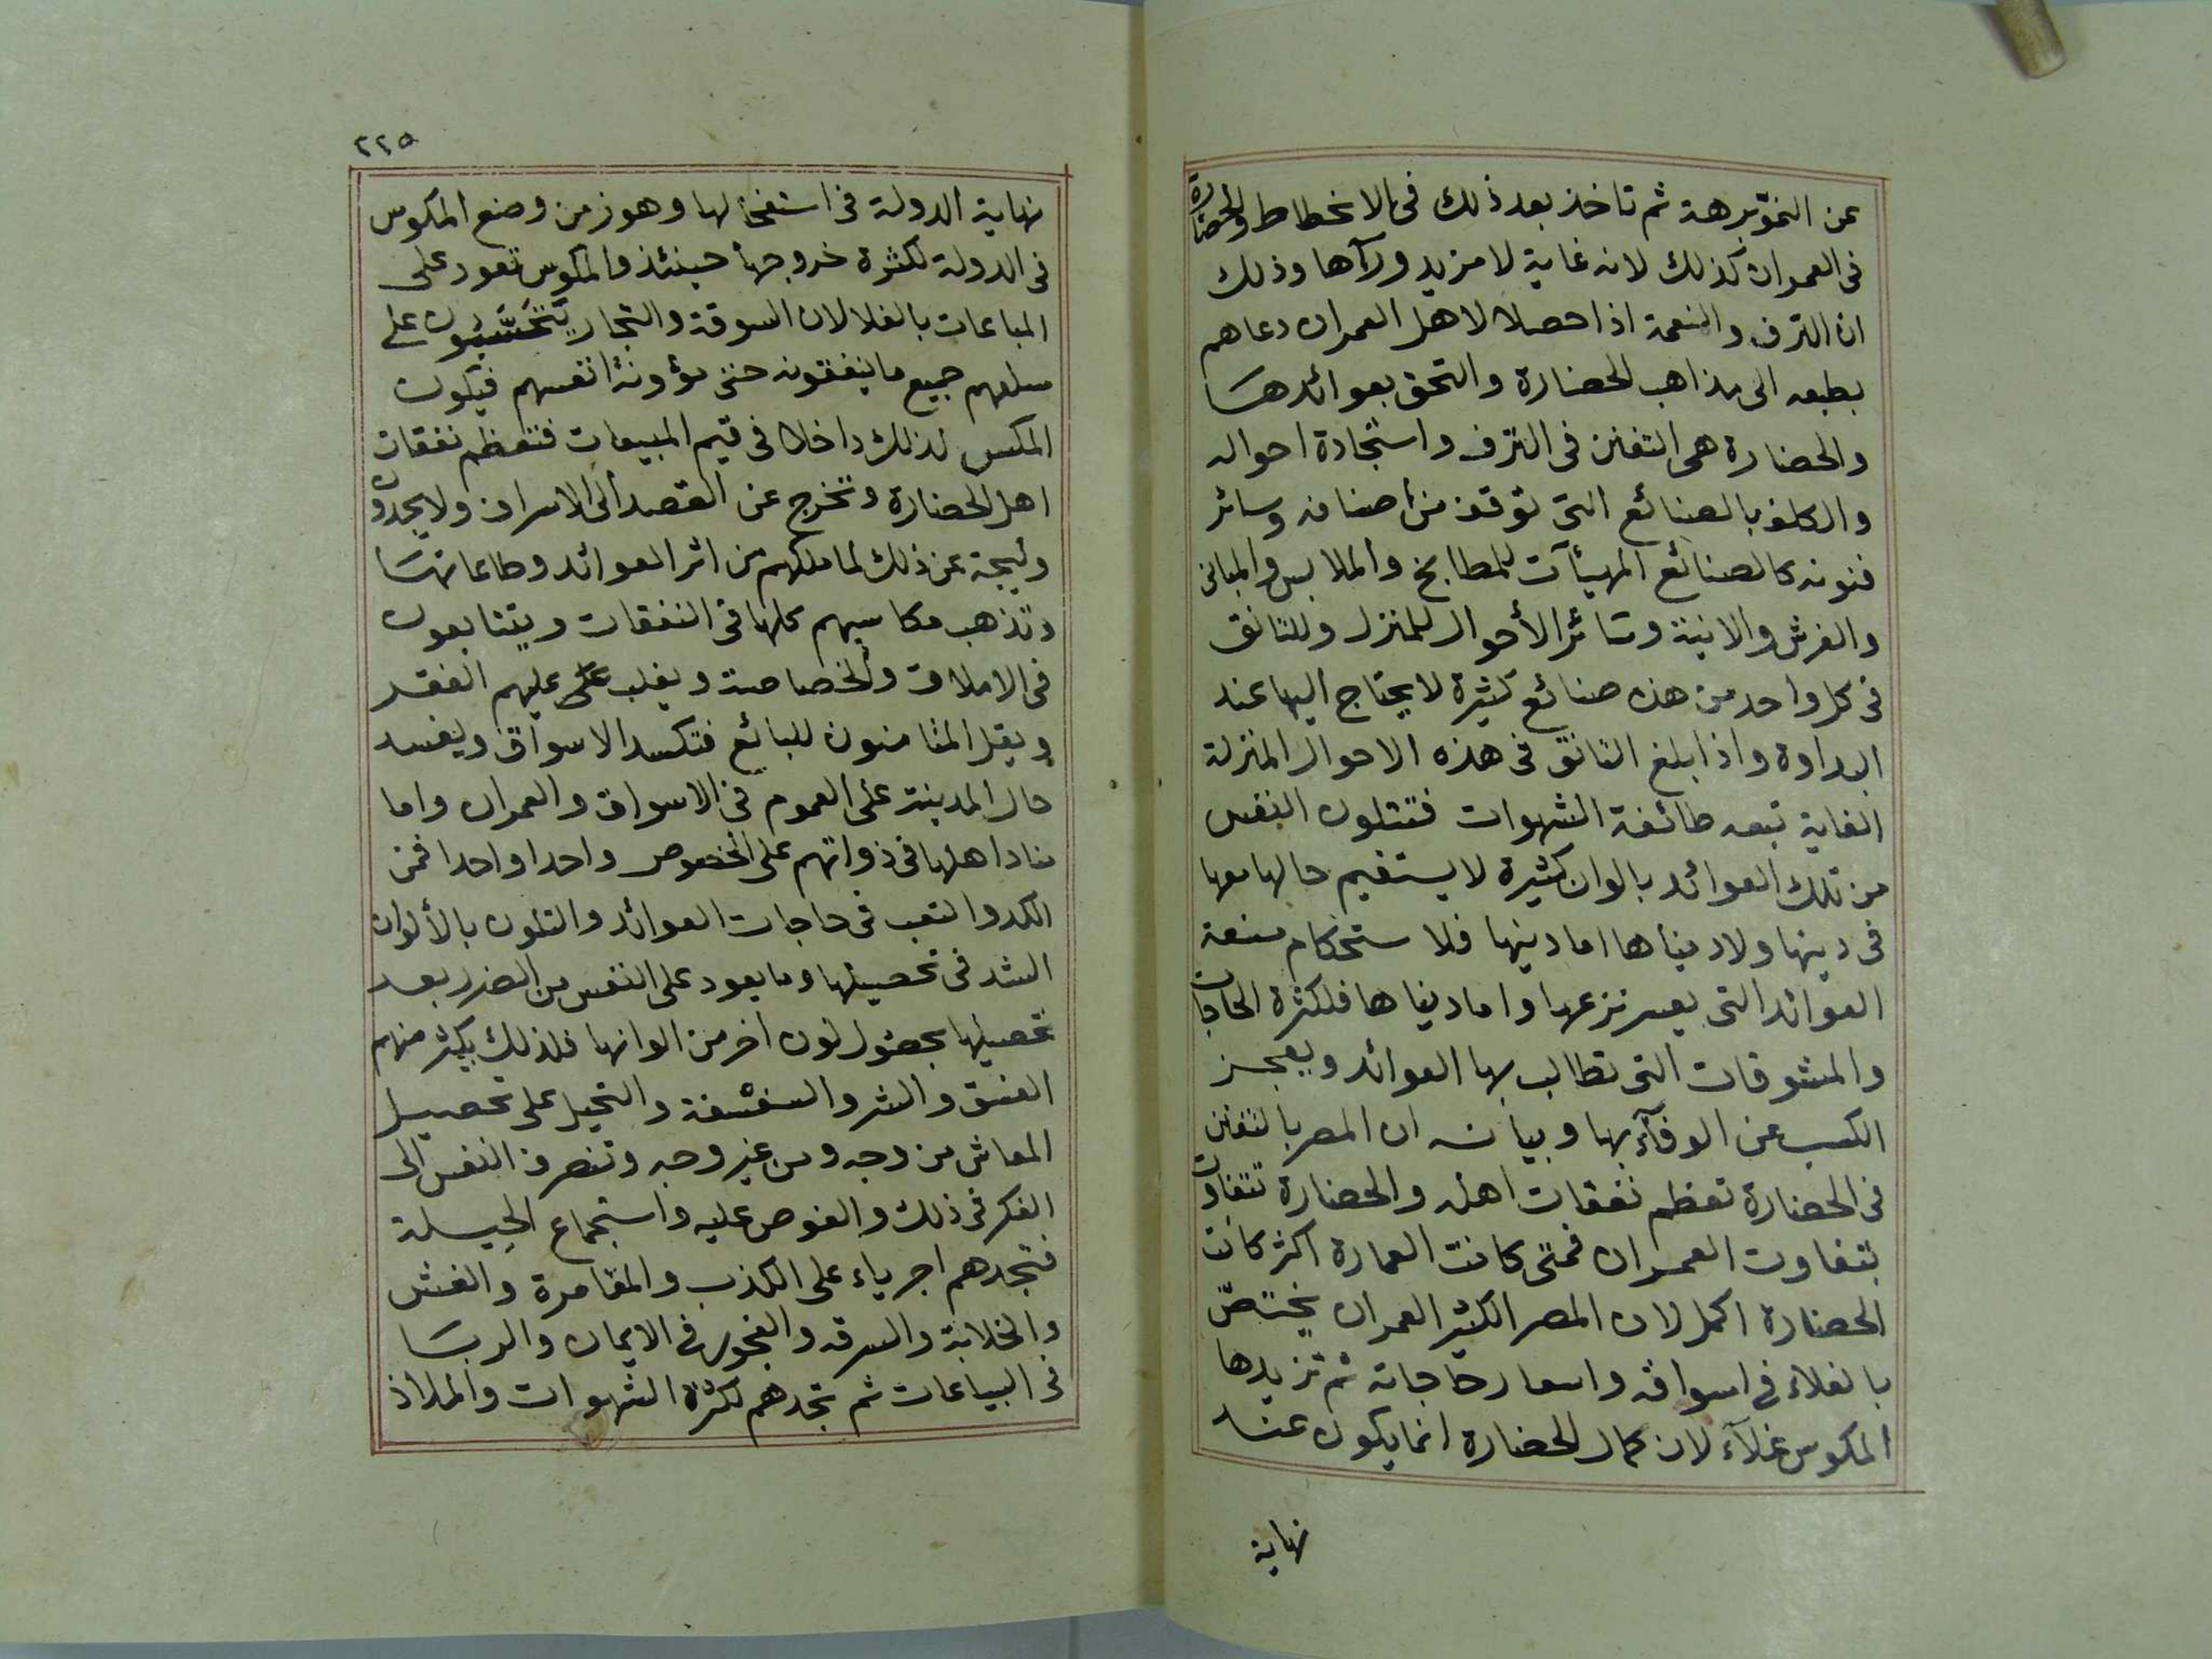 عن النموّ برهة ثم تاخذ بعد ذلك فى الانحطاط والحضارة
فى العمران كذلك لانه غاية لا مزيد ورآها وذلك
ان الترف والنعمة اذا حصلا لاهل العمران دعاهم
بطبعه الى مذاهب الحضارة والتخق بعوائدها
والحضارة هى التفنن فى الترف واستجادة احواله
والكلف بالصنائع التى توقف من اصنافه وسائر
فنونه كالصنائع المهيئآت للمطابخ والملابس والمبانى
والفرش والانية وسائر الأحوال للمنزل وللتانق
فى كل واحد من هذه صنائع كثيرة لا يحتاج اليها عند
البداوة واذا بلغ التانق فى هذه الاحوال المنزلة
الغاية تبعه طائفة الشهوات فتتلون النفس
من تلك العوائد بالوان كثيرة لا يستقيم حالها معها
فى دينها ولا دنياها اما دينها فلا ستحكام منعة
العوائد التى يعسر نزعها واما دنياها فلكثرة الحاجات
والمشوقات التى تطالب بها العوائد ويعجز
الكسب عن الوفآء بها وبيانه ان المصر بالتفنن
فى الحضارة تعظم نفقات اهله والحضارة تتفاوت
بتفاوت العمران فمتى كانت العمارة اكثر كانت
الحضارة اكمل لان المصر الكثير العمران يختصّ
بالغلاء فى اسواقه واسعار حاجاته ثم تزيدها
المكوس غلآء لان كمال الحضارة انما يكون عند
نهاية
٢٢٥
نهاية الدولة فى استفحالها وهو زمن وضع المكوس
فى الدولة لكثرة خروجها حينئذ والمكوس تعود على
المباعات بالغلا لان السوقة والتجار يتحسّبون على
سلعهم جميع ما ينفقونه حتى مؤونة انفسهم فيكون
المكس لذلك داخلا فى قيم المبيعات فتعظم نفقات
اهل الحضارة وتخرج عن القصد الى الاسراف ولا يجدون
وليجة عن ذلك لما ملكهم من اثر العوائد وطاعاتها
وتذهب مكاسبهم كلها فى النفقات ويتتابعون
فى الاملاق والخصاصة ويغلب على عليهم الفقر
ويقل المتامنون للبائع فتكسد الاسواق ويفسد
حال المدينة على العموم فى الاسواق والعمران واما
فساد اهلها فى ذواتهم على الخصوص واحدا واحدا فمن
الكد والتعب فى حاجات العوائد والتلون بالألوان
الشد فى تحصيلها وما يعود على النفس من الضرر بعد
تحصيلها بحصول لون اخر من الوانها فلذلك يكثر منهم
الفسق والشر والسفسفة والتحيل على تحصيل
المعاش من وجه ومن غير وجه وتنصرف النفس الى
الفكر فى ذلك والغوص عليه واستجماع الحيلة
فتجدهم اجرياء على الكذب والمقامرة والغش
والخلابة والسرقه والفجور فى الايمان والربا
فى البياعات ثم تجدهم لكثرة الشهوات والملاذ